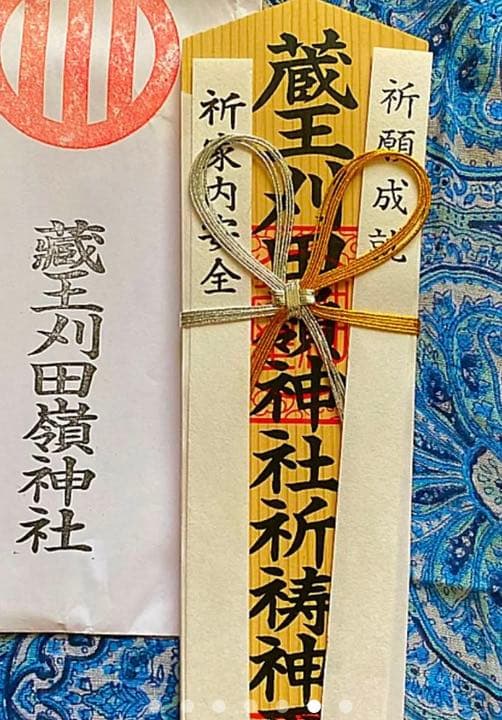 祈願成就
蔵王刈田嶺神社祈祷神
祈家内安全
藏王刈田嶺神社